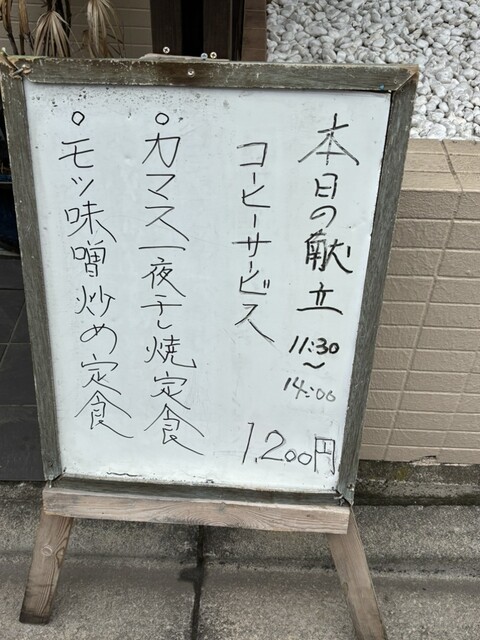 本日の献立
11:30
～
14:00
コーヒーサービス
1,200円
○カマス一夜干し焼定食
○モツ味噌炒め定食